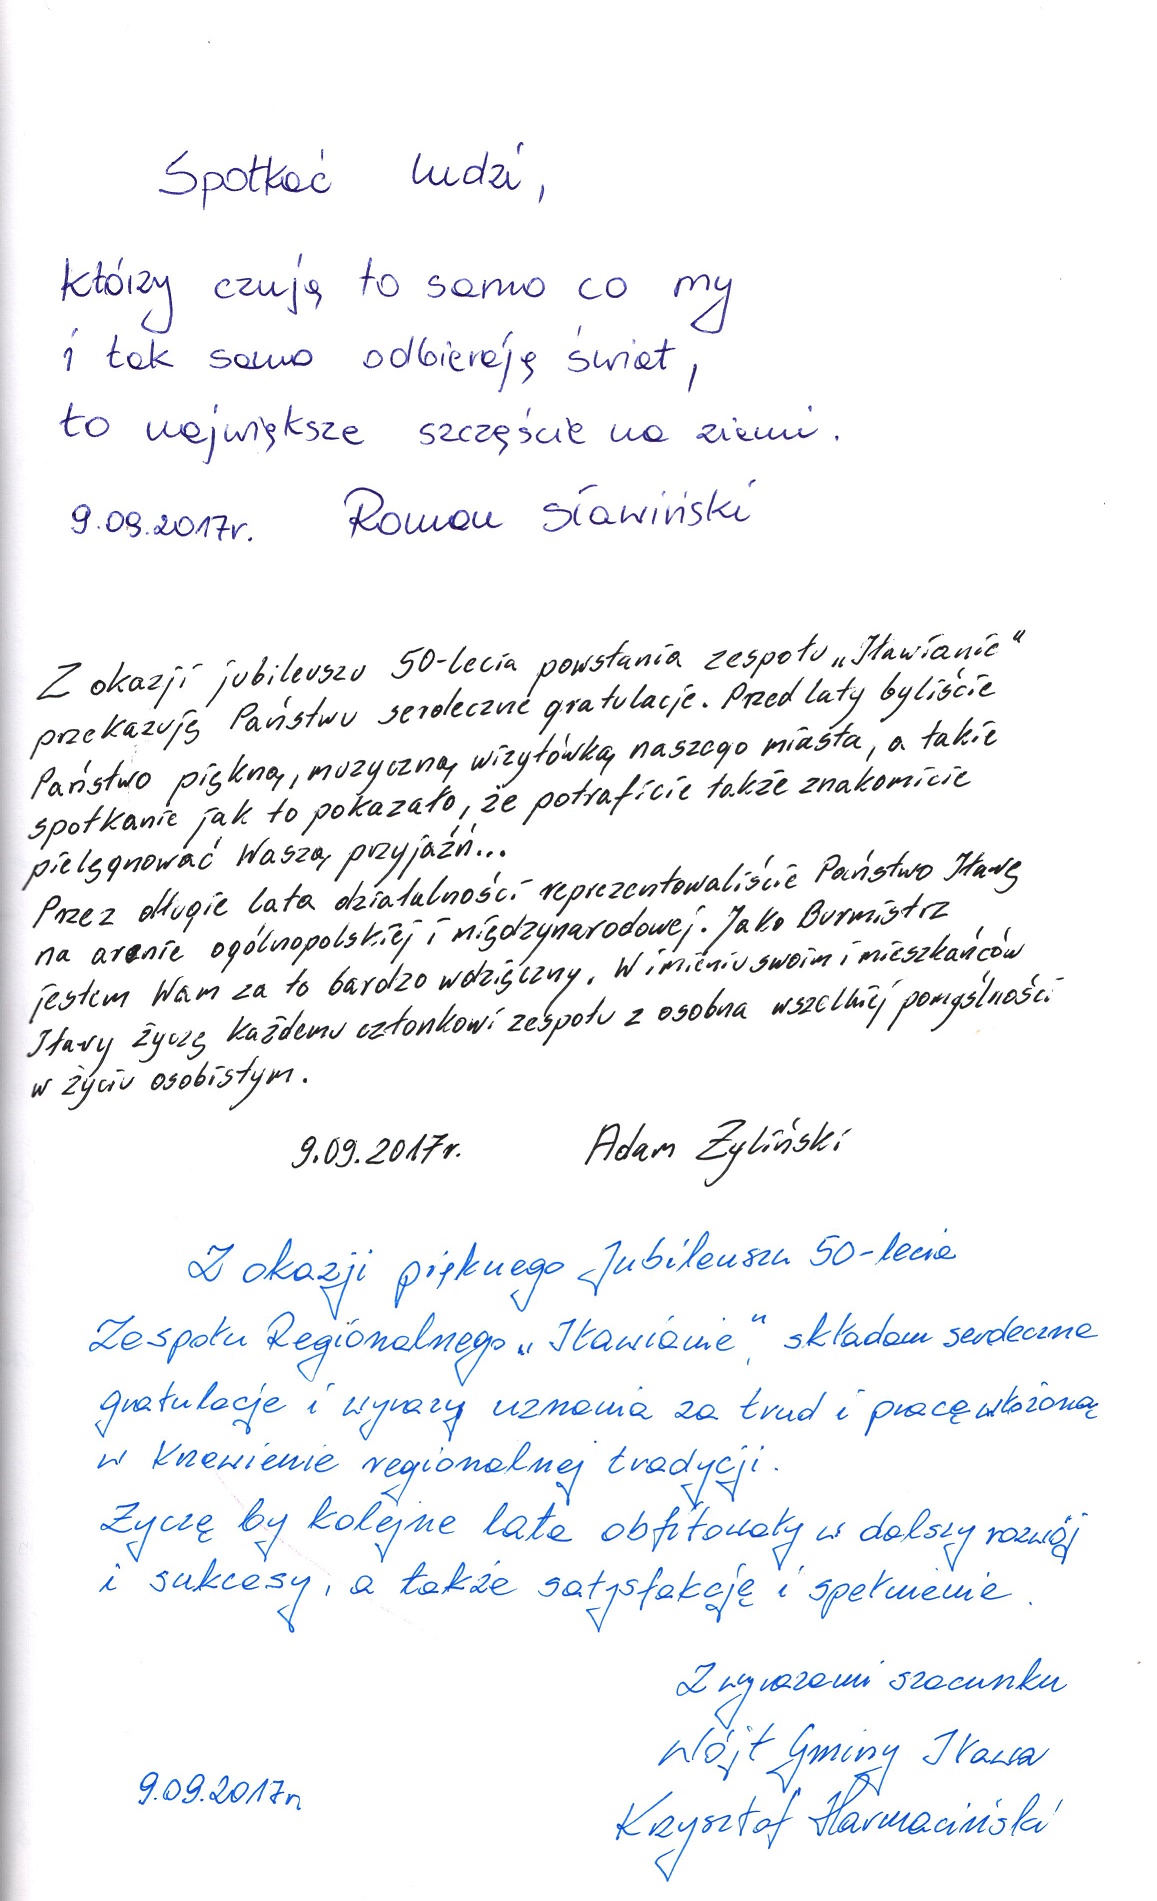 Spotkać ludzi,
którzy czują to samo co my
i tak samo odbierają świat,
to największe szczęście na ziemi.
9.09.2017r. Roman Sławiński
Z okazji jubileuszu 50-lecia powstania zespołu „Iławianie“
przekazuję Państwu serdeczne gratulacje. Przed laty byliście
Państwo piękną, muzyczną wizytówką naszego miasta, a takie
spotkanie jak to pokazało, że potraficie także znakomicie
pielęgnować Waszą przyjaźń...
Przez długie lata działalności reprezentowaliście Państwo Iławę
na arenie ogólnopolskiej i międzynarodowej. Jako Burmistrz
jestem Wam za to bardzo wdzięczny. W imieniu swoim i mieszkańców
Iławy życzę każdemu członkowi zespołu z osobna wszelkiej pomyślności
w życiu osobistym.
9.09.2017r. Adam Żyliński
Z okazji pięknego Jubileuszu 50-lecia
Zespołu Regionalnego „Iławianie“ składam serdeczne
gratulacje i wyrazy uznania za trud i pracę włożoną
w krzewienie regionalnej tradycji.
Życzę by kolejne lata obfitowały w dalszy rozwój
i sukcesy, a także satysfakcję i spełnienie.
Z wyrazami szacunku
Wójt Gminy Iława
9.09.2017r. Krzysztof Harmaciński